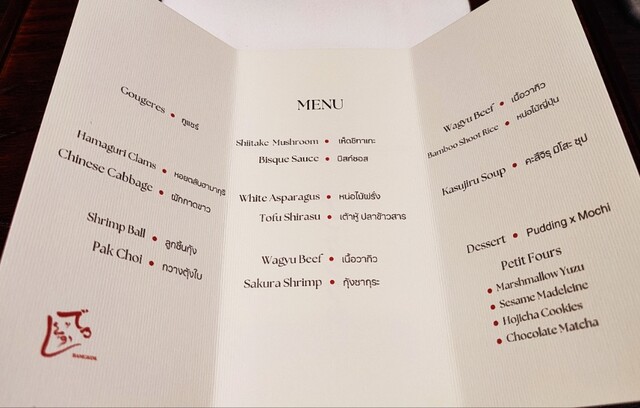 Gougeres • กูแชร์
Hamaguri Clams • หอยตลับฮามากุริ
Chinese Cabbage • ผักกาดขาว
Shrimp Ball • ลูกชิ้นกุ้ง
Pak Choi • กวางตุ้งใบ
BANGKOK
MENU
Shiitake Mushroom • เห็ดชิทาเกะ
Bisque Sauce • บิสก์ซอส
White Asparagus • หน่อไม้ฝรั่ง
Tofu Shirasu • เต้าหู้ ปลาข้าวสาร
Wagyu Beef • เนื้อวากิว
Sakura Shrimp • กุ้งซากุระ
Wagyu Beef • เนื้อวากิว
Bamboo Shoot Rice • หน่อไม้ญี่ปุ่น
Kasujiru Soup • คะสึจิรุ มิโสะ ซุป
Dessert • Pudding x Mochi
Petit Fours
• Marshmallow Yuzu
• Sesame Madeleine
• Hojicha Cookies
• Chocolate Matcha